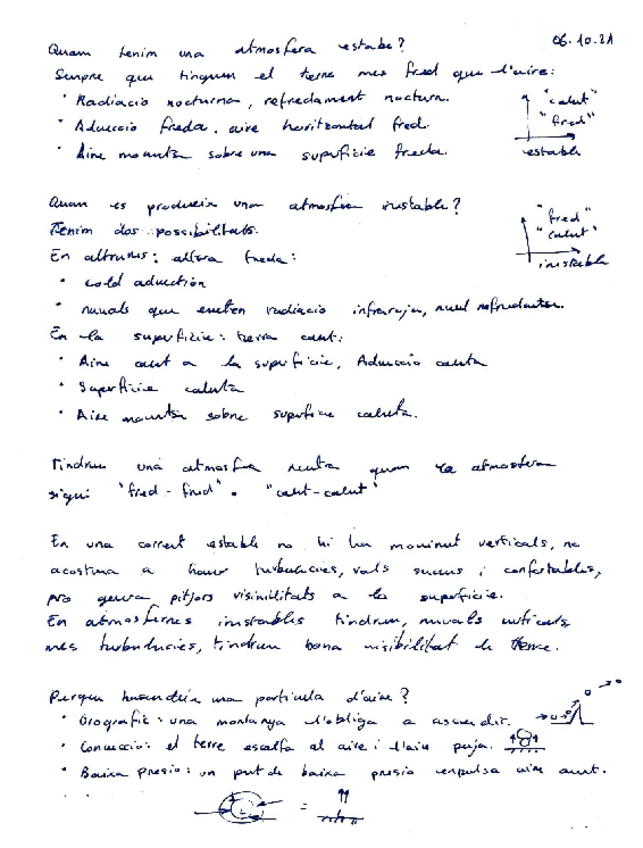 06.10.21
Quam tenim una atmosfera estabe?
Sempre que tinguem el terre mes fred que l'aire:
· Radiacio nocturna, refredament nocturn.
· Adveccio freda. aire horitzontal fred.
· Aire mountsa sobre una superficie freda.
"calut"
"fred"
estable
Quan es produeix una atmosfera inestable?
Tenim dos possibilitats.
En altures: altura freda:
· cold advection
· nuvols que emeten radiacio infraroja, nuvol refredantse.
"fred"
"calut"
inestable
En la superficie: terra caut:
· Aire caut a la superficie, Adveccio cauta
· Superficie caluta
· Aire mountsa sobre superficie caluta.
Tindrem una atmosfera neutra quan la atmosfera
sigui "fred - fred" o "calut-calut"
En una corrent estable no hi ha moviment verticals, no
acostuma a haver turbulencies, vols suaus i confortables,
pro genera pitjors visivilitats a la superficie.
En atmosferes inestables tindrem, nuvols verticals
mes turbulencies, tindrem bona visibilitat de terre.
Perque una particula d'aire?
· Orografic: una montanya l'obliga a ascendir.
· Conveccio: el terre escalfa al aire i l'aire puja.
· Baixa presio: un punt de baixa presio expulsa aire amunt.
L
=